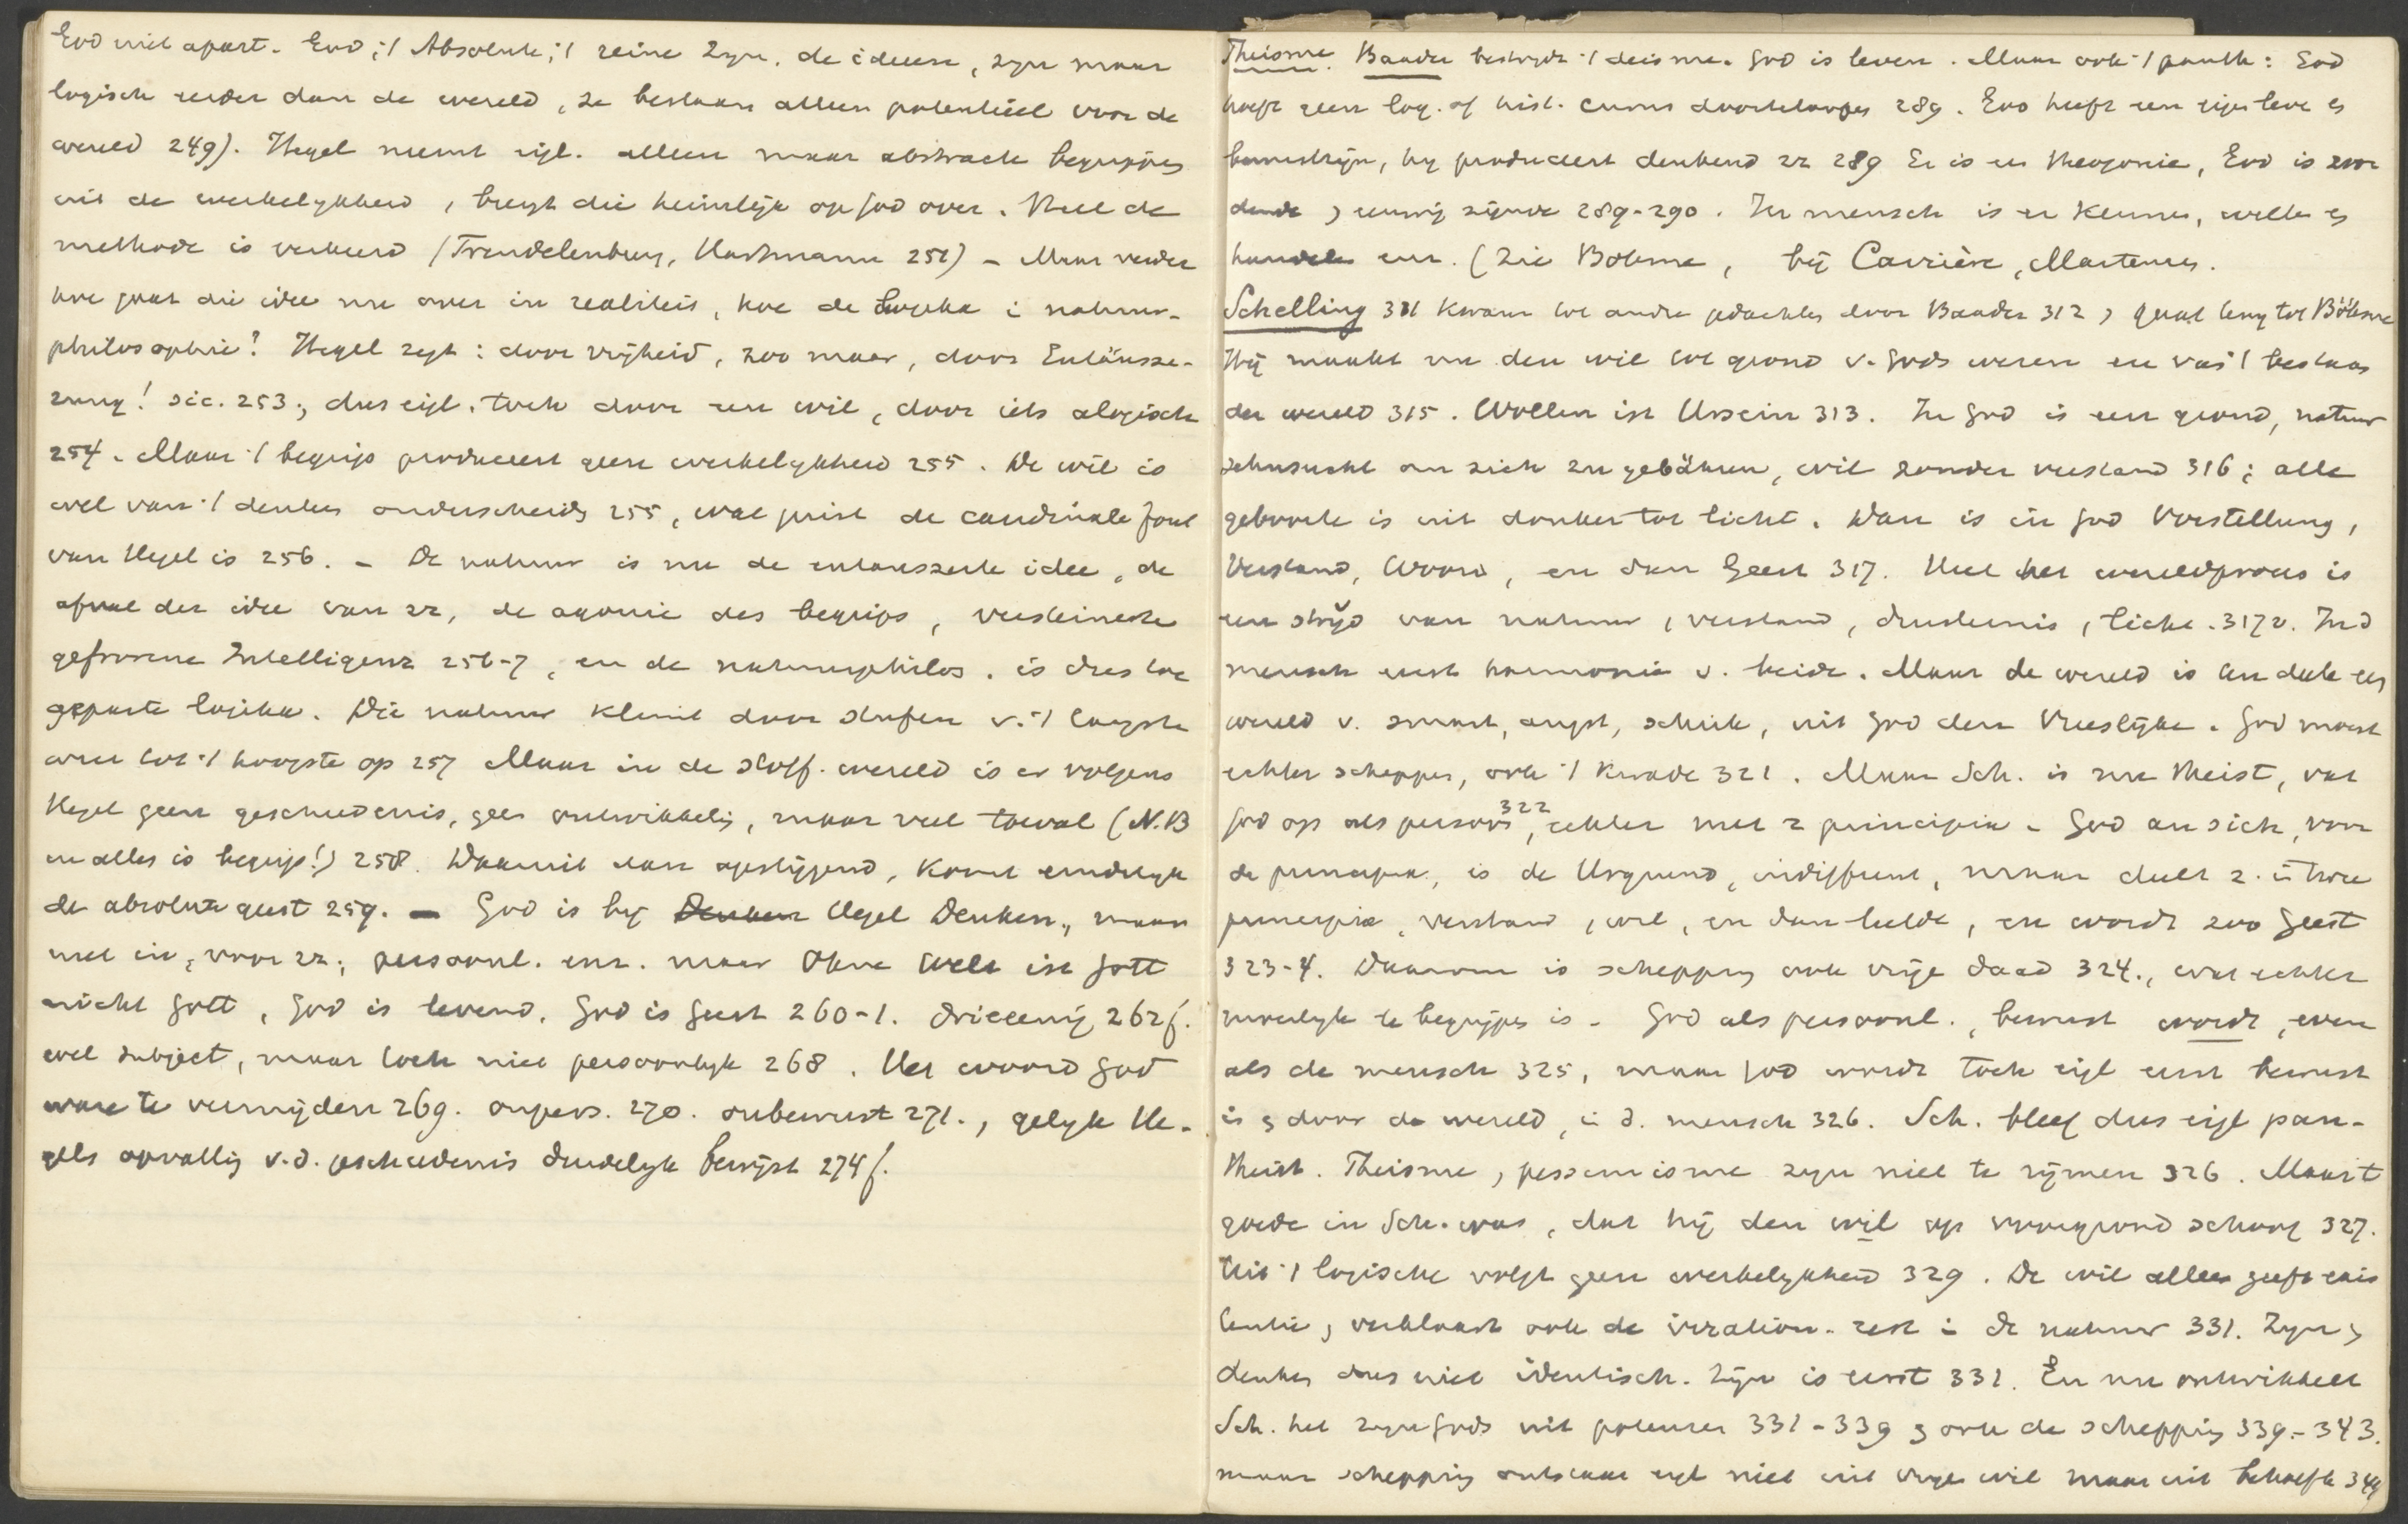 God niet apart. God, 't Absolute, 't reine Zyn, de ideeen, zyn maar
logisch eerder dan de wereld, ze bestaan alleen potentieel voor de
wereld 249). Hegel neemt eigl. alleen maar abstracte begrippen
uit de werkelykheid, brengt die heimelijk op God over. Heel de
methode is verkeerd (Trendelenburg, Hartmann 251) - Maar verder
hoe gaat die idee nu over in realiteit, hoe de logika in natuur-
philosophie? Hegel zegt: door vrijheid, zoo maar, door Entäusse-
rung! sic. 253; dus eigl. toch door een wil, door iets alogisch
254. Maar 't begrip produceert geen werkelykheid 255. De wil is
wel van 't denken onderscheiden 255, wat juist de cardinale fout
van Hegel is 256. - De natuur is nu de entausserte idee, de
afval der idee van zz, de agonie des begrips, versteinerte
gefrorene Intelligenz 256-7, en de natuurphilos. is dus toe
gepaste logika. Die natuur klimt door stufen v. 't laagste
weer tot 't hoogste op 257 Maar in de stoff. wereld is er volgens
Hegel geen geschiedenis, geen ontwikkeling, maar veel toeval (N.B
en alles is begrip!) 258. Daaruit dan opstijgend, komt eindelyk
de absolute geest 259. - God is by Denken Hegel Denken, maar
niet in, voor zz, persoonl. enz. maar Ohne Welt ist Gott
nicht Gott, God is levend, God is geest 260-1. drieeenig 262f.
wel subject, maar toch niet persoonlyk 268. Het woord God
ware te vermijden 269. onpers. 270. onbewust 271., gelyk He-
gels opvatting v.d. geschiedenis duidelyk bewijst 274f.
Theisme. Baader bestrydt 't deisme. God is leven. Maar ook 't panth: God
hoeft geen log. of hist. cursus doortelopen 289. God heeft een eigen leven en
bewustzijn, hy produceert denkend zz 289 Er is een theogonie, God is wor
dende, eeuwig zijnde 289-290. In mensch is er kennen, willen en
handelen enz. (Zie Böhme, bij Carrière, Martensen.
Schelling 311 kwam tot andre gedachten door Baader 312, gaat terug tot Böhme
Hij maakt nu den wil tot grond v. Gods wezen en van 't bestaan
der wereld 315. Wollen ist Ursein 313. In God is een grond, natuur
sehnsucht om sich zu gebären, wil zonder verstand 316; alle
geboorte is uit donker tot licht. Dan is in God Vorstellung,
Verstand, Woord, en dan Geest 317. Heel het wereldproces is
een strijd van natuur, verstand, duisternis, licht. 317v. In d
mensch eerst harmonie v. beide. Maar de wereld is ten deele een
wereld v. smart, angst, schrik, uit God den Vreeslijke. God moest
echter scheppen, ook 't kwade 321. Maar Sch. is nu theist, vat
God op als persoon 322, echter met 2 principia. God an sich, voor
de principia, is de Urgrund, indifferent, maar deelt z. in twee
principia, verstand, wil, en dan liefde, en wordt zoo Geest
323-4. Daarom is schepping ook vrije daad 324., wat echter
moeilyk te begrijpen is. God als persoonl., bewust wordt, even
als de mensch 325, maar God wordt toch eigl eerst bewust
in, door de wereld, in d. mensch 326. Sch. bleef dus eigl pan-
theist. Theisme, pessimisme zyn niet te rijmen 326. Maar 't
goede in Sch. was, dat hij den wil op voorgrond schoof 327.
Uit 't logische volgt geen werkelykheid 329. De wil alleen geeft exis
tentie, verklaart ook de irration. rest in de natuur 331. Zyn,
denken dus niet identisch. Zijn is eerst 331. En nu ontwikkelt
Sch. het zyn Gods uit potenzen 331-339 ook de schepping 339-343.
maar schepping ontstaat eigl niet uit vrije wil maar uit behoefte 344